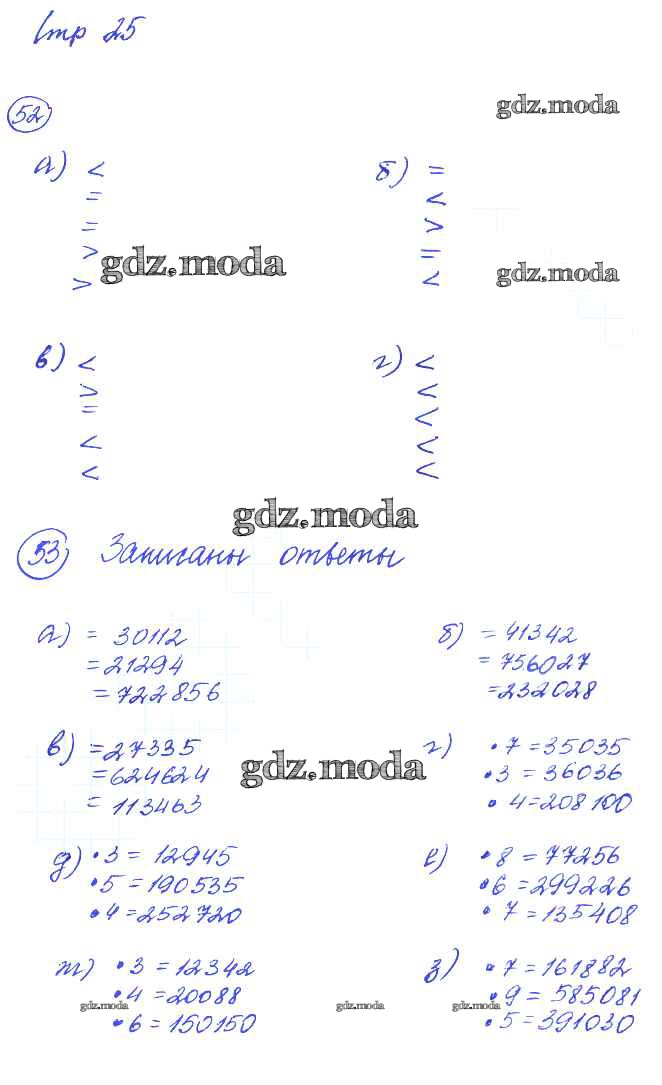 Стр 25
52
gdz.moda
а) < б) =
= <
= >
> =
gdz.moda
> <
gdz.moda
в) < г) <
> <
= <
< <
< <
gdz.moda
53) Записаны ответы
а) = 30112 б) = 41342
= 21294 = 756027
= 722856 = 232028
в) = 27335 г) • 7 = 35035
= 624624 • 3 = 36036
gdz.moda
= 113463 • 4 = 208100
д) • 3 = 12945 е) • 8 = 77256
• 5 = 190535 • 6 = 299226
• 4 = 252720 • 7 = 135408
ж) • 3 = 12342 з) • 7 = 161882
• 4 = 20088 • 9 = 585081
gdz.moda gdz.moda gdz.moda
• 6 = 150150 • 5 = 391030